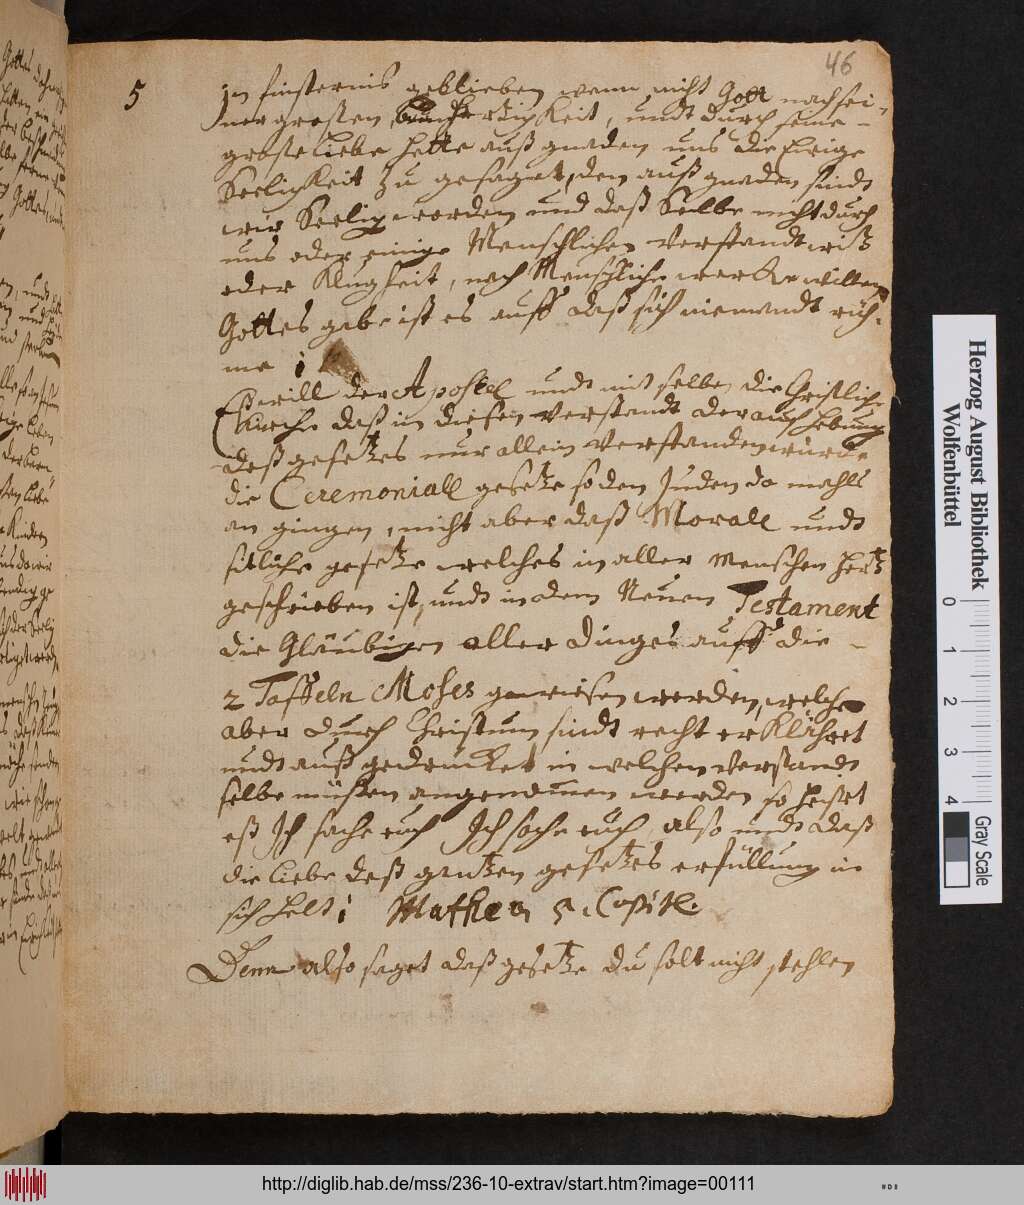 46
5
in finsternis geblieben wenn nicht Gott nach sei-
ner großen barmhertzigkeit, undt durch seine -
große liebe hette auß gnaden uns die Ewige
Seeligkeit zu gesaget, den auß gnaden sindt
wir Seelig worden und daß Selbe nicht durch
uns oder einige Menschlichen verstandt witz
oder Klugheit, noch Menschliche wercke willen
Gottes gabe ist es auff daß sich niemandt rüh-
me i
Eß will der Apostel undt mit selben die Christliche
Kirche daß in diesen verstandt der auff hebung
deß gesetzes nur allein verstanden würde
die Ceremoniall gesetze so den Juden da mahls
an gingen, nicht aber daß Morall undt
sitliche gesetze welches in aller Menschen hertz
geschrieben ist, undt in dem Neuen Testament
die Gläubigen aller dinges auff die -
2 Taffeln Moses gewiesen werden, welche
aber durch Christum sindt recht erKlähret
undt auß gedrucket in welchen verstandt
selbe müßen angenommen werden so heiset
eß Ich sache euch Ich sache euch, also undt daß
die liebe deß gantzen gesetzes erfüllung in
sich helt i Mathea 5. Capitl.
Denn also saget daß gesetze du solt nicht stehlen
Herzog August Bibliothek
Wolfenbüttel
0 1 2 3 4
Gray Scale
http://diglib.hab.de/mss/236-10-extrav/start.htm?image=00111